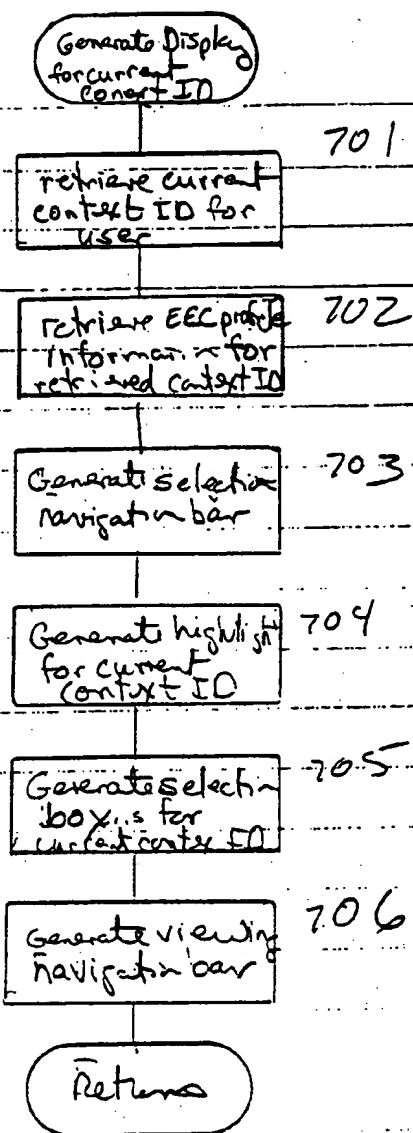 Generate Display
for current
conext ID
701
retrieve current
context ID for
user
702
retrieve EEC profile
information for
retrieved context ID
703
Generate selection
navigation bar
704
Generate highlight
for current
context ID
705
Generate selection
boxes for
current contex ID
706
Generate viewing
navigation bar
Return